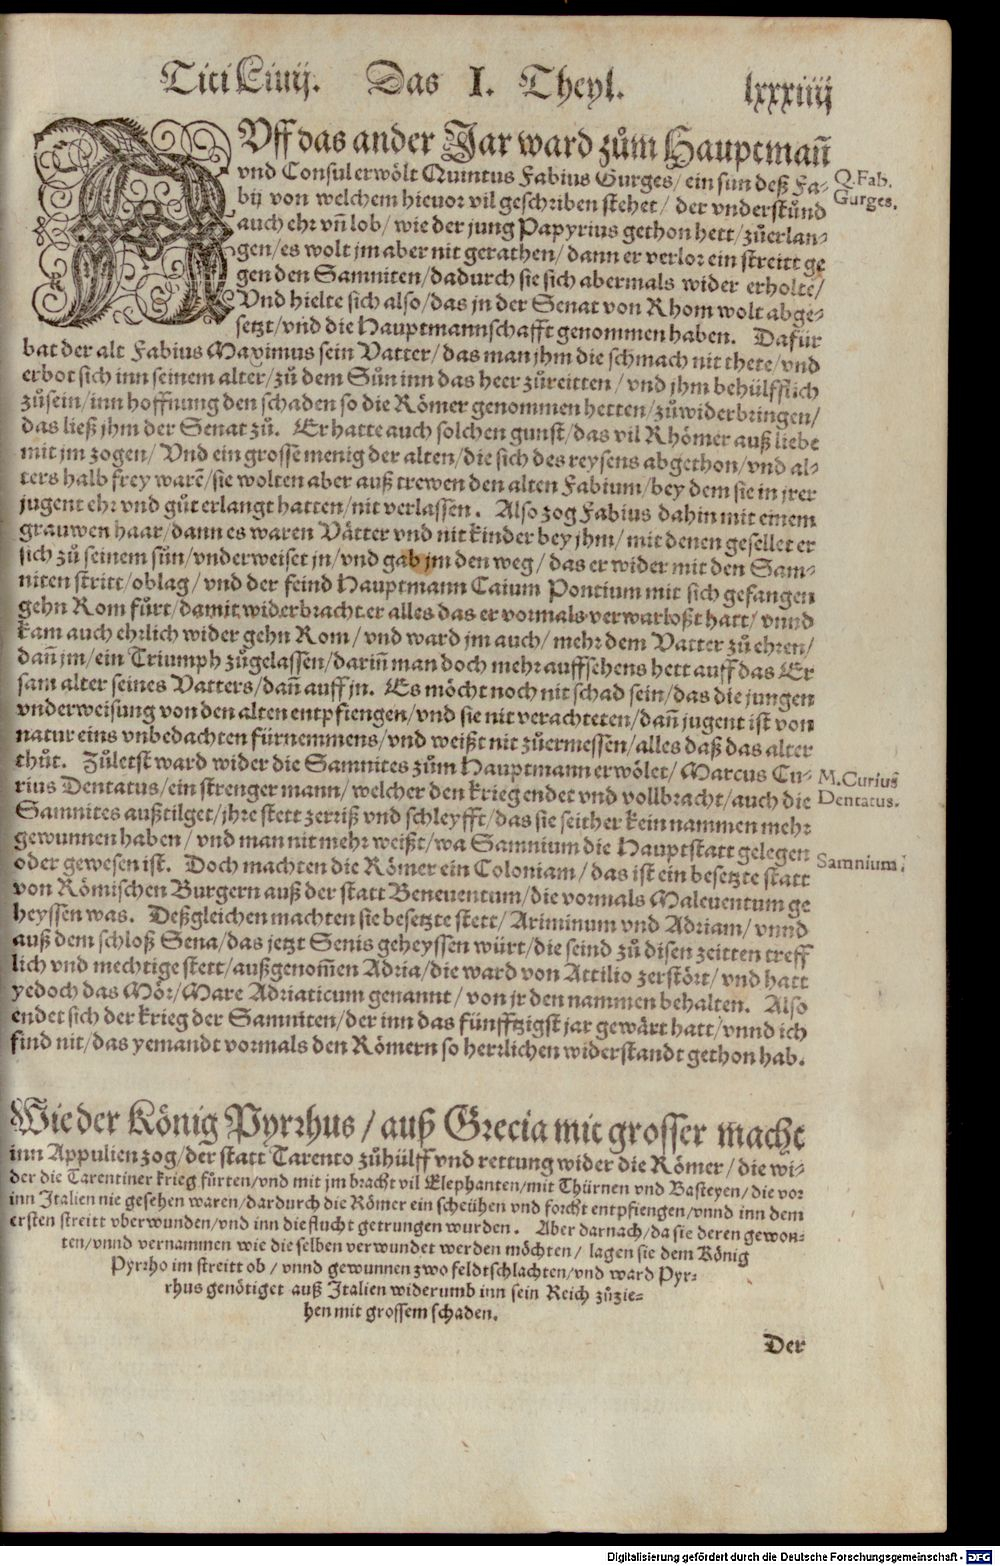 Titi Liuij. Das I. Theyl. lxxxiiij
AVff das ander Jar ward zům Hauptmañ
vnd Consul erwölt Quintus Fabius Gurges/ ein sun deß Fa-
bij von welchem hieuor vil geschriben stehet/ der vnderstůnd
auch ehr vñ lob/ wie der jung Papyrius gethon hett/ zůerlan-
gen/ es wolt jm aber nit gerathen/ dann er verlor ein streitt ge
gen den Samniten/ dadurch sie sich abermals wider erholte/
Vnd hielte sich also/ das jn der Senat von Rhom wolt abge-
setzt/ vnd die Hauptmannschafft genommen haben. Dafür
Q. Fab.
Gurges.
bat der alt Fabius Maximus sein Vatter/ das man jhm die schmach nit thete/ vnd
erbot sich inn seinem alter/ zů dem Sůn inn das heer zůreitten/ vnd jhm behülfflich
zůsein/ inn hoffnung den schaden so die Römer genommen hetten/ zůwiderbringen/
das ließ jhm der Senat zů. Er hatte auch solchen gunst/ das vil Rhömer auß liebe
mit jm zogen/ Vnd ein grosse menig der alten/ die sich des reysens abgethon/ vnd al-
ters halb frey warē/ sie wolten aber auß trewen den alten Fabium/ bey dem sie in jrer
jugent ehr vnd gůt erlangt hatten/ nit verlassen. Also zog Fabius dahin mit einem
grauwen haar/ dann es waren Vätter vnd nit kinder bey jhm/ mit denen gesellet er
sich zů seinem sůn/ vnderweiset jn/ vnd gab jm den weg/ das er wider mit den Sam-
niten stritt/ oblag/ vnd der feind Hauptmann Caium Pontium mit sich gefangen
gehn Rom fůrt/ damit widerbracht er alles das er vormals verwarloßt hatt/ vnnd
kam auch ehrlich wider gehn Rom/ vnd ward jm auch/ mehr dem Vatter zů ehren/
dañ jm/ ein Triumph zůgelassen/ dariñ man doch mehr auffsehens hett auff das Er
sam alter seines Vatters/ dañ auff jn. Es möcht noch nit schad sein/ das die jungen
vnderweisung von den alten entpfiengen/ vnd sie nit verachteten/ dañ jugent ist von
natur eins vnbedachten fürnemmens/ vnd weißt nit zůermessen/ alles daß das alter
thůt. Zůletst ward wider die Samnites zům Hauptmann erwölet/ Marcus Cu-
rius Dentatus/ ein strenger mann/ welcher den krieg endet vnd vollbracht/ auch die
M. Curius
Dentatus.
Samnites außtilget/ jhre stett zerriß vnd schleyfft/ das sie seither kein nammen mehr
gewunnen haben/ vnd man nit mehr weißt/ wa Samnium die Hauptstatt gelegen
oder gewesen ist. Doch machten die Römer ein Coloniam/ das ist ein besetzte statt
Samnium.
von Römischen Burgern auß der statt Beneuentum/ die vormals Maleuentum ge
heyssen was. Deßgleichen machten sie besetzte stett/ Ariminum vnd Adriam/ vnnd
auß dem schloß Sena/ das jetzt Senis geheyssen würt/ die seind zů disen zeitten treff
lich vnd mechtige stett/ außgenom̄en Adria/ die ward von Attilio zerstört/ vnd hatt
yedoch das Mör/ Mare Adriaticum genannt/ von jr den nammen behalten. Also
endet sich der krieg der Samniten/ der inn das fünfftzigst jar gewärt hatt/ vnnd ich
find nit/ das yemandt vormals den Römern so herrlichen widerstandt gethon hab.
Wie der König Pyrrhus/ auß Grecia mit grosser macht
inn Appulien zog/ der statt Tarento zůhülff vnd rettung wider die Römer/ die wi-
der die Tarentiner krieg fůrten/ vnd mit jm bracht vil Elephanten/ mit Thürnen vnd Basteyen/ die vor
inn Italien nie gesehen waren/ dardurch die Römer ein scheühen vnd forcht entpfiengen/ vnnd inn dem
ersten streitt vberwunden/ vnd inn die flucht getrungen wurden. Aber darnach/ da sie deren gewon-
ten/ vnnd vernammen wie die selben verwundet werden möchten/ lagen sie dem König
Pyrrho im streitt ob/ vnnd gewunnen zwo feldtschlachten/ vnd ward Pyr-
rhus genötiget auß Italien widerumb inn sein Reich zůzie-
hen mit grossem schaden.
Der
Digitalisierung gefördert durch die Deutsche Forschungsgemeinschaft - DFG